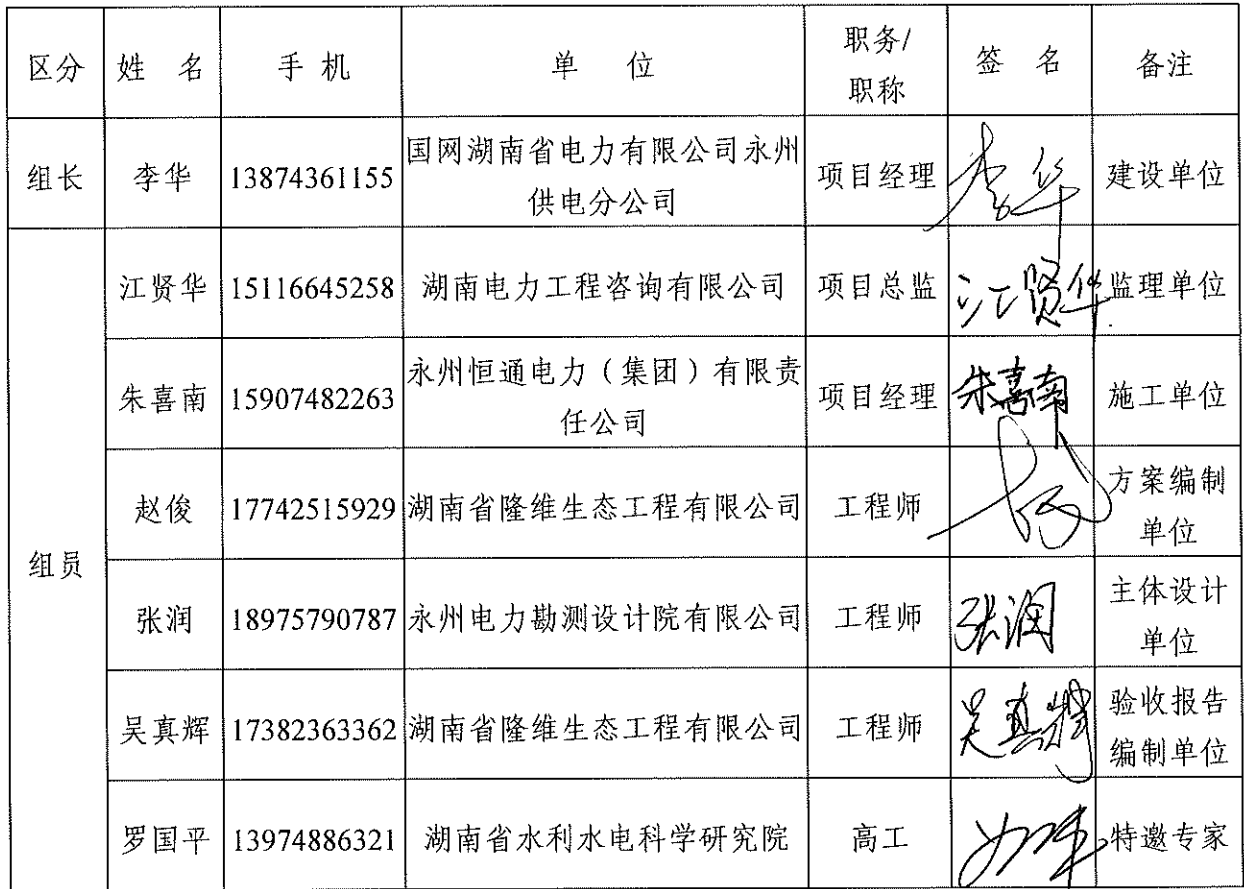 区分 姓 名 手 机 单 位 职务/ 职称 签 名 备注
组长 李华 13874361155 国网湖南省电力有限公司永州 供电分公司 项目经理 李华 建设单位
组员
江贤华 15116645258 湖南电力工程咨询有限公司 项目总监 江贤华 监理单位
朱喜南 15907482263 永州恒通电力（集团）有限责 任公司 项目经理 朱喜南 施工单位
赵俊 17742515929 湖南省隆维生态工程有限公司 工程师 方案编制 单位
张润 18975790787 永州电力勘测设计院有限公司 工程师 张润 主体设计 单位
吴真辉 17382363362 湖南省隆维生态工程有限公司 工程师 吴真辉 验收报告 编制单位
罗国平 13974886321 湖南省水利水电科学研究院 高工 特邀专家